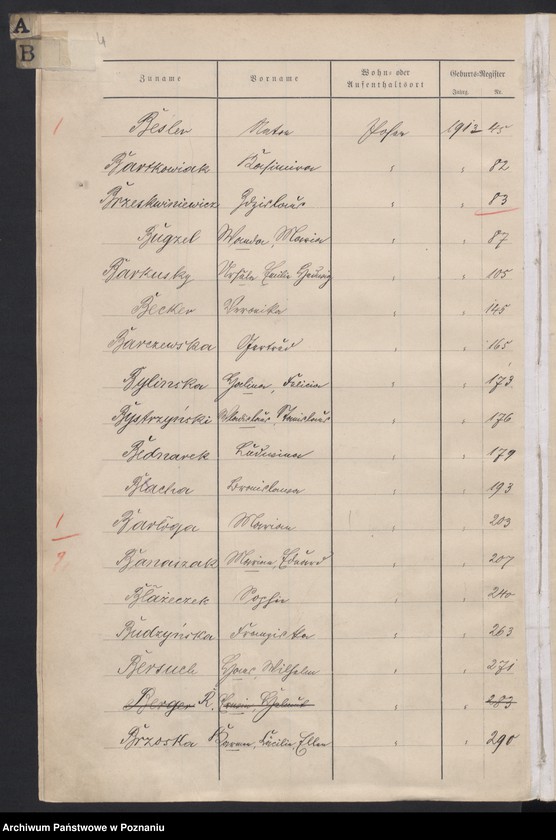 A
B
4
Zuname Vorname Wohn- oder Aufenthaltsort Geburts-Register
Jahrg. Nr.
1 Besler Posen 1912 45
Bartkowiak Kasimira " " 82
Brzeskwiniewicz Zdzislaus " " 83
Bugzel Wanda, Maria " " 87
Barkusky Ursula Cecilie Hedwig " " 105
Becker Veronika " " 145
Barczewska Gertrud " " 165
Bylinska Halina, Felicia " " 173
Bystrzyński Wladislaus, Stanislaus " " 176
Bednarek Ludwina " " 179
Blacha Bronislawa " " 193
1 Barloga Marian " " 203
Banaszak Marian, Eduard " " 207
Blażeczek Sophie " " 240
Budzyńska Franziska " " 263
Bersuch Hans, Wilhelm " " 271
Berger R. Erwin, Helmut " " 283
Brzoska Cäcilie, Ellen " " 290
Archiwum Państwowe w Poznaniu